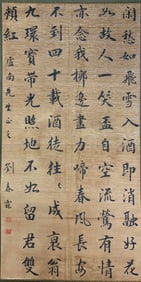 閑愁如飛雪入酒即消融好花
如故人一笑盃自空流鶯有情
亦念我柳邊盡力啼春風長安
不到四十載酒徒往往成衰翁
九環寶帶光照地不如留君雙
頰紅
虛南先生正之
劉春霖